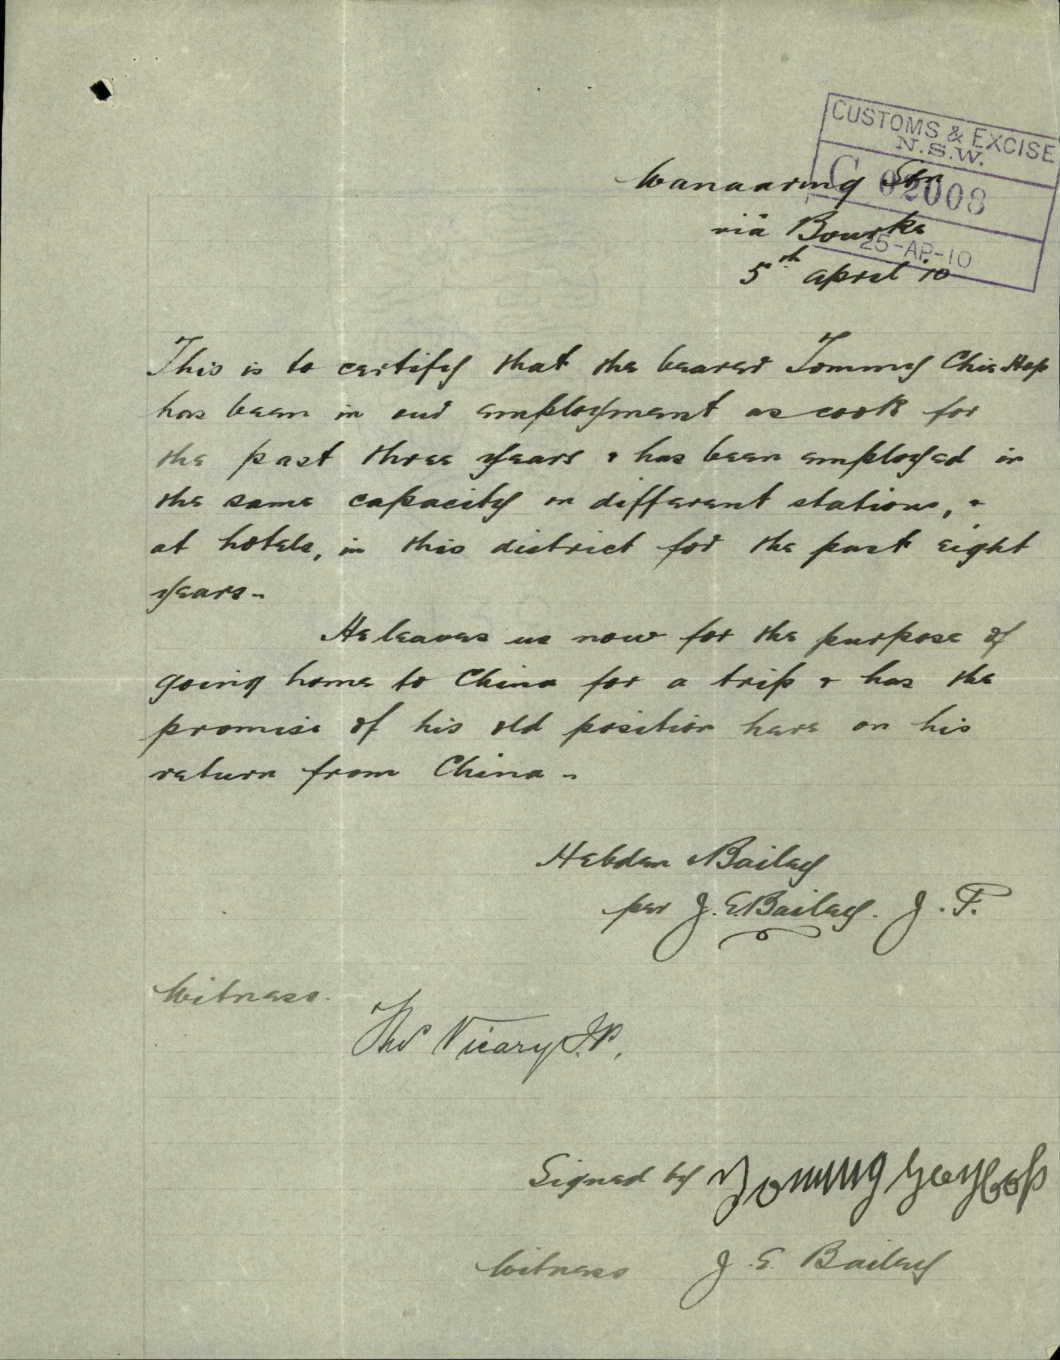 CUSTOMS & EXCISE
N.S.W.
C 02008
25-AP-10
Wanaaring Stn
via Bourke
5th April 10
This is to certify that the bearer Tommy Chie Hop
has been in our employment as cook for
the past three years & has been employed in
the same capacity on different stations, &
at hotels, in this district for the past eight
years -
He leaves us now for the purpose of
going home to China for a trip & has the
promise of his old position here on his
return from China -
Hebden Bailey
per J. E. Bailey. J. P.
Witness.
Thos Vicary J.P.
Signed by Tommy
Witness J. E. Bailey